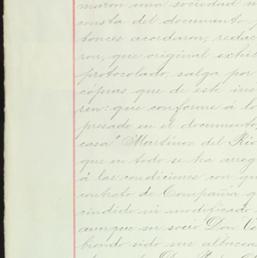 maron una sociedad
consta del documento
tonces acordaron, redac
ron, que original exhi
protocolado, salga por
copias que de este
ren: que conforme á lo
presado en el documento,
casa "Martinez del Rio
que en todo se ha arreg
á las condiciones con
contrato de Compañia
cindido ni modificado
aunque su socio Don
biendo sido me albacea